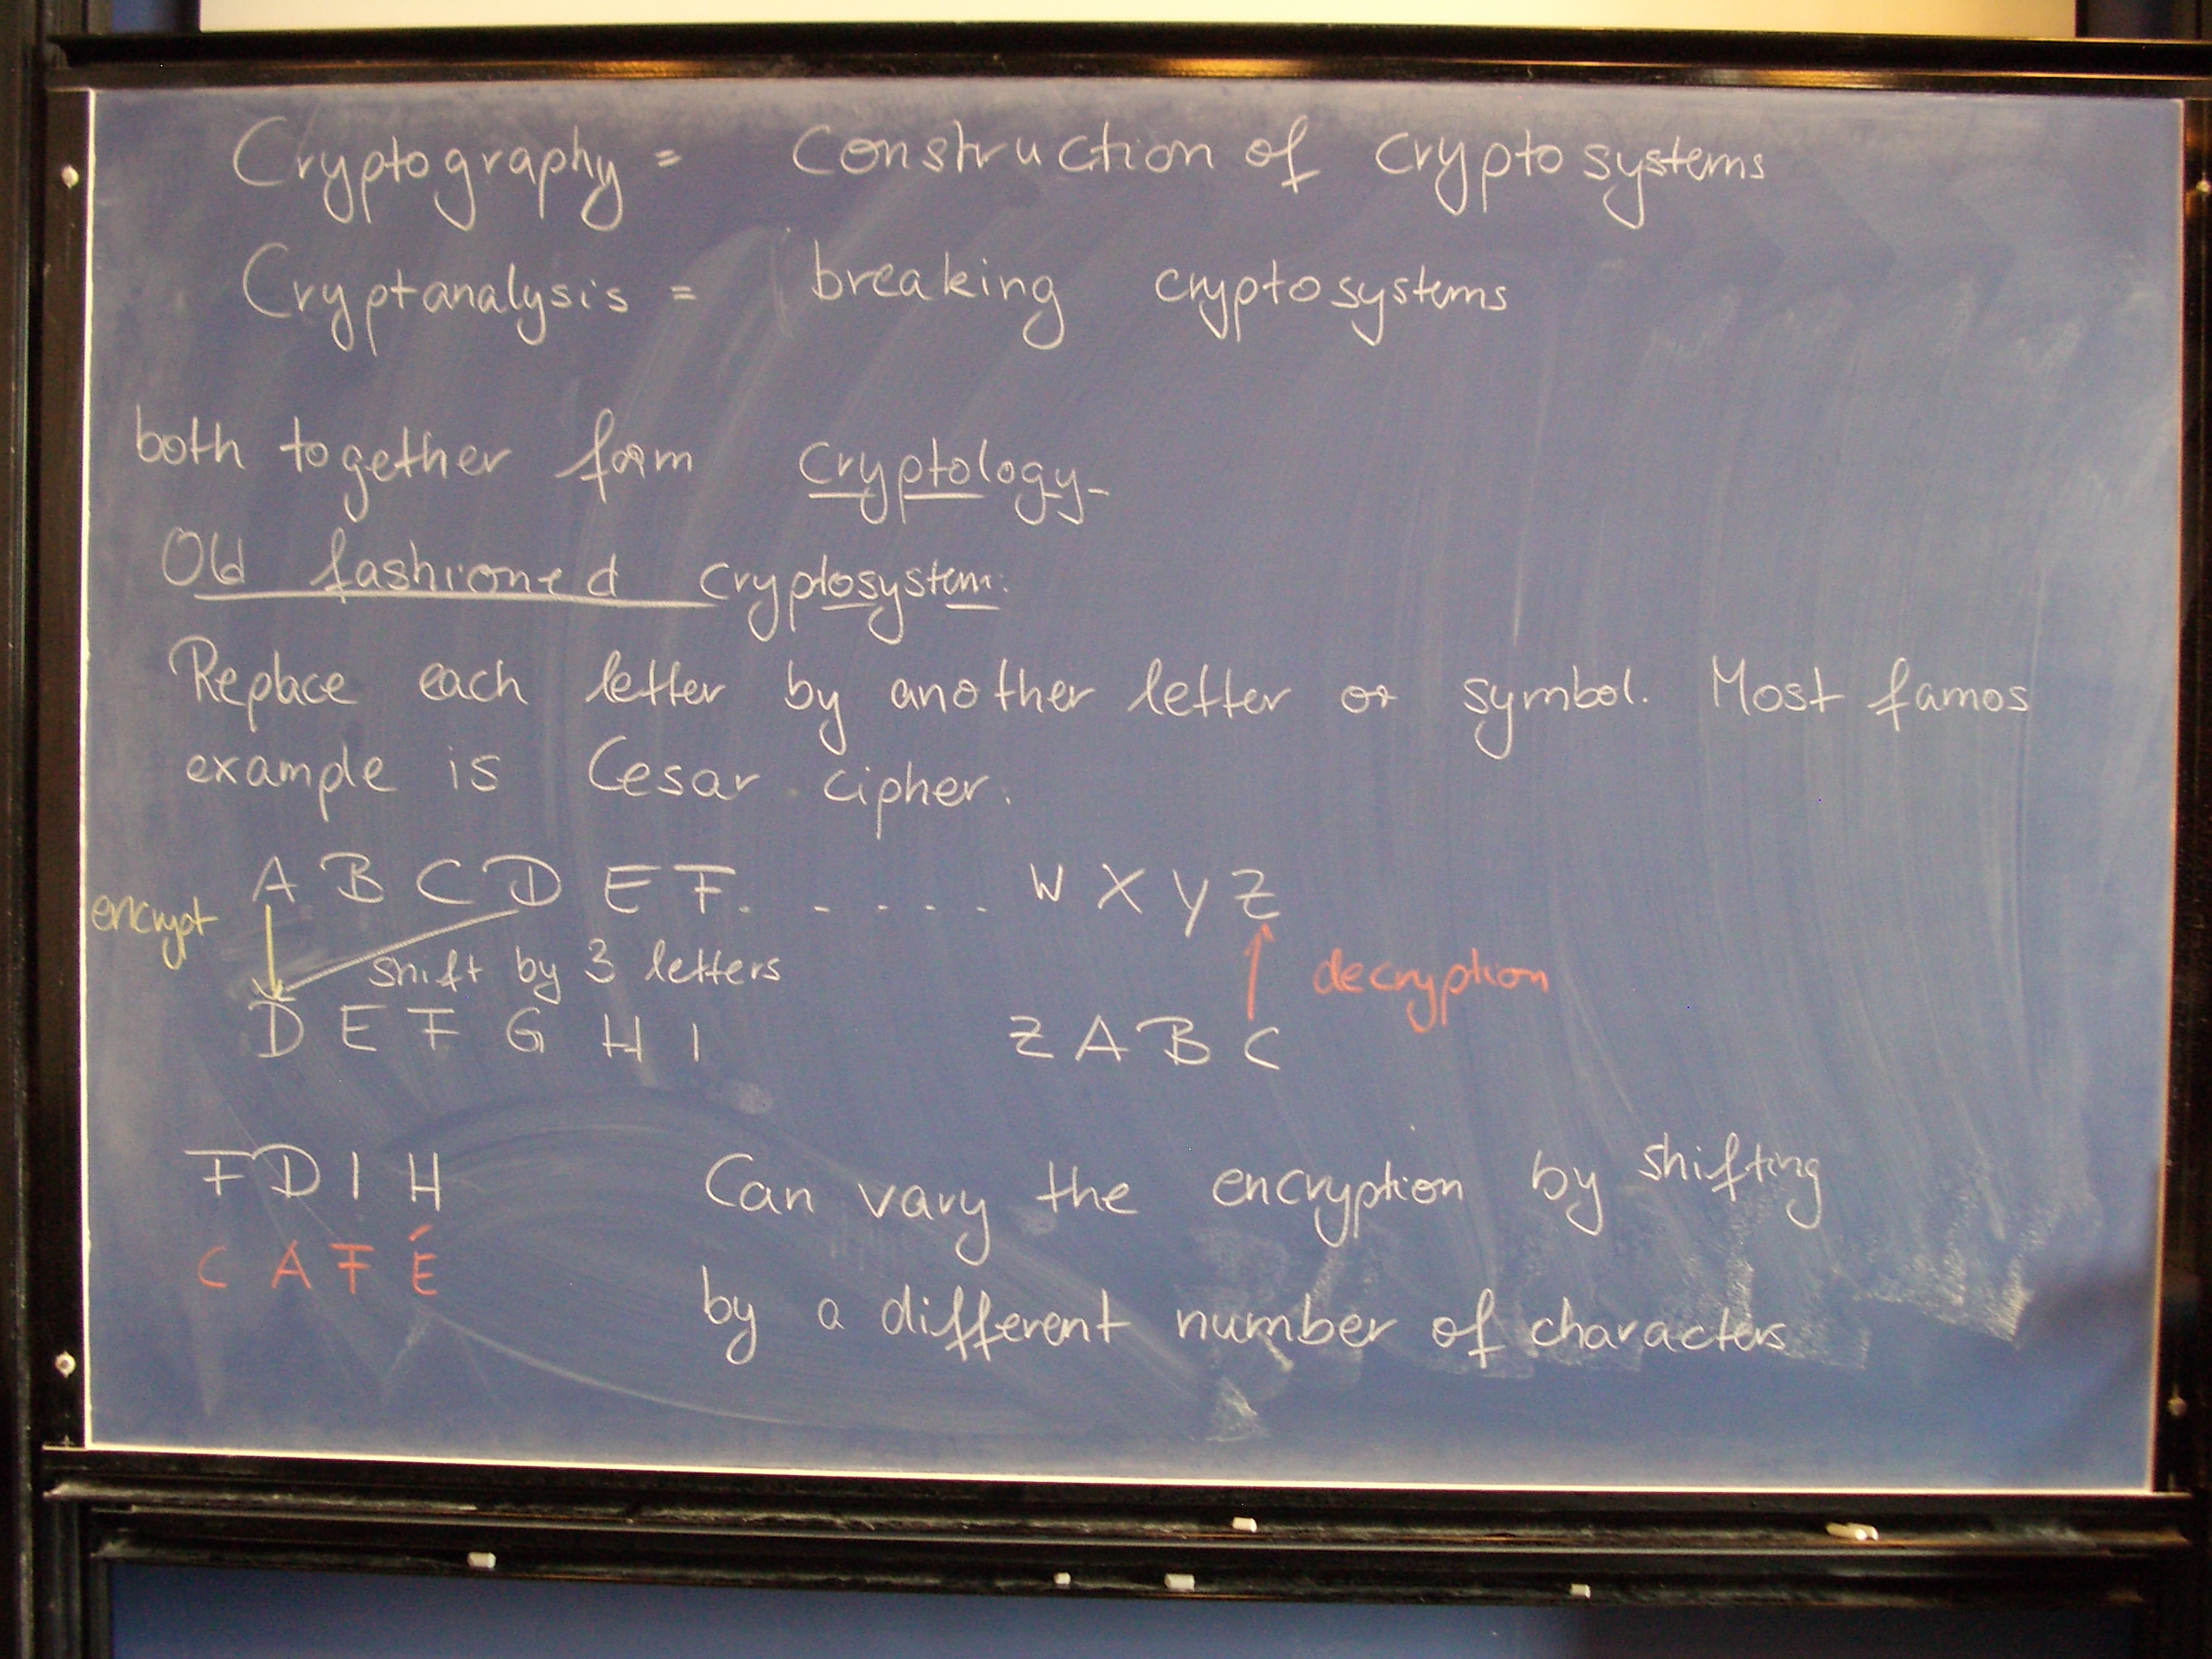 Cryptography = Construction of cryptosystems
Cryptanalysis = breaking cryptosystems
both together form cryptology.
Old fashioned cryptosystem:
Replace each letter by another letter or symbol. Most famos
example is Cesar cipher.
A B C D E F . . . . . . W X Y Z
encrypt
shift by 3 letters
decryption
D E F G H I Z A B C
F D I H
C A F É
Can vary the encryption by shifting
by a different number of characters